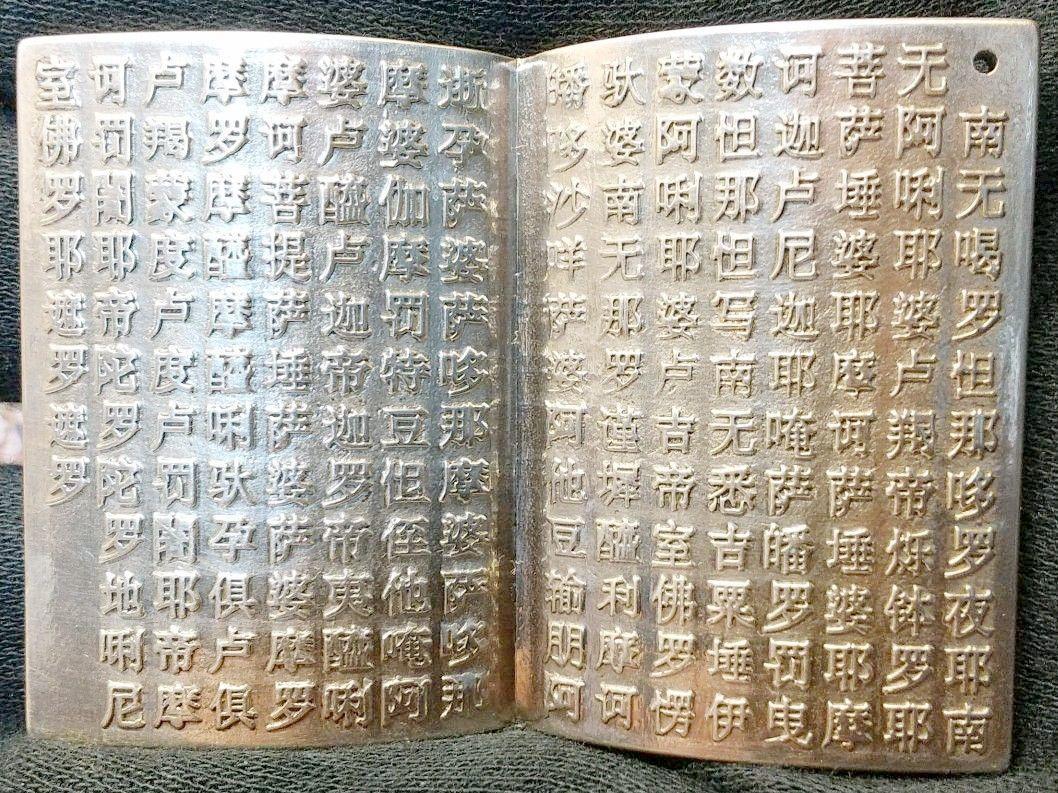 南无喝罗怛那哆罗夜耶南
无阿唎耶婆卢羯帝烁钵罗耶
菩萨埵婆耶摩诃萨埵婆耶摩
诃迦卢尼迦耶唵萨皤罗罚曳
数怛那怛写南无悉吉粟埵伊
蒙阿唎耶婆卢吉帝室佛罗愣
驮婆南无那罗谨墀醯利摩诃
皤哆沙咩萨婆阿他豆输朋阿
逝孕萨婆萨哆那摩婆萨哆那
摩婆伽摩罚特豆怛侄他唵阿
婆卢醯卢迦帝迦罗帝夷醯唎
摩诃菩提萨埵萨婆萨婆摩罗
摩罗摩醯摩醯唎驮孕俱卢俱
卢羯蒙度卢度卢罚阇耶帝摩
诃罚阇耶帝陀罗陀罗地唎尼
室佛罗耶遮罗遮罗